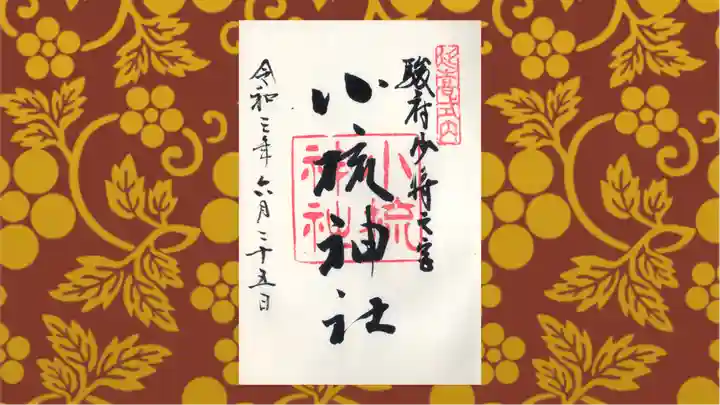 延喜式内
駿府少将之宮
小梳神社
小梳神社
令和三年六月二十五日